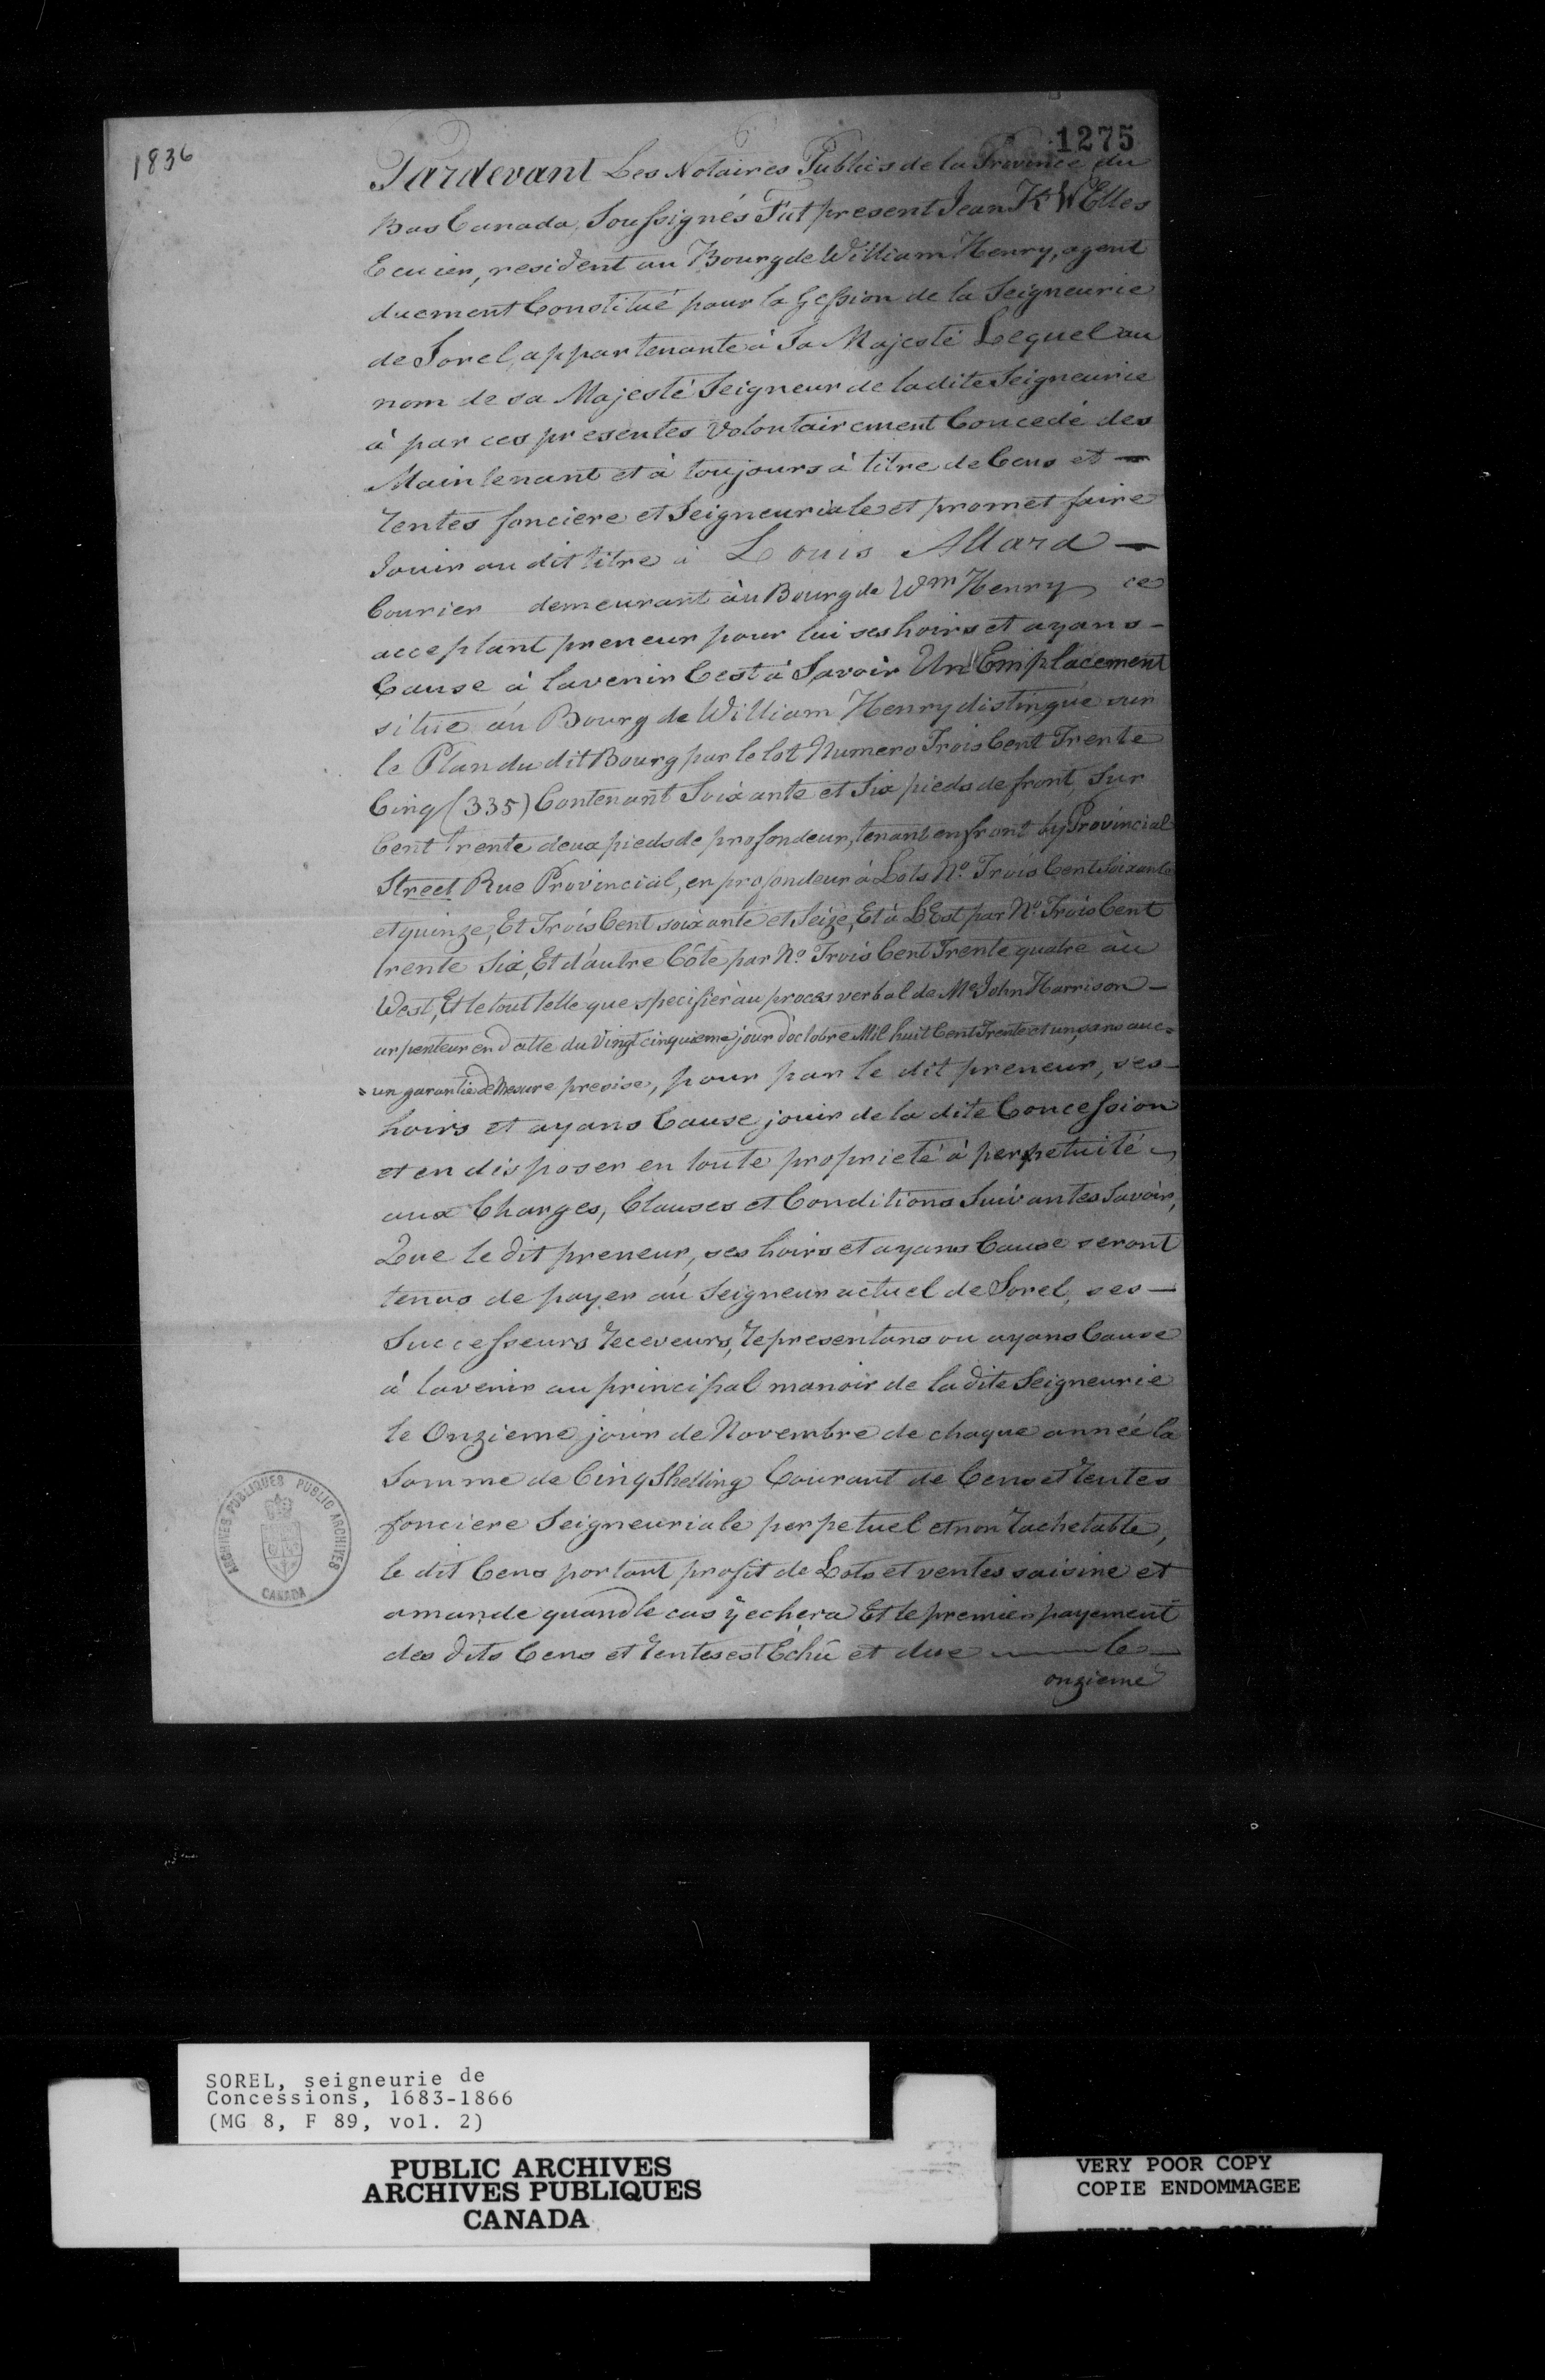 1836
1275
Pardevant Les Notaires Publics de la Province du
Bas Canada, Soussignés Fut present Jean Kr WElles
Ecuier, resident au Bourg de William Henry, agent
duement Constitué pour la Gession de la Seigneurie
de Sorel, appartenante à Sa Majesté Lequel au
nom de sa Majesté Seigneur de ladite Seigneurie
à par ces presentes Volontairement Concedé des
Maintenant et à toujours à titre de Cens et —
rentes fonciere et Seigneuriale et promet faire
Jouir au dit titre à Louis Allard —
Courier demeurant àu Bourg de Wm Henry ce
acceptant preneur pour lui ses hoirs et ayans —
Cause à lavenir Cest à Savoir Un Emplacement
situé àu Bourg de William Henry distingué sur
le Plan du dit Bourg par le lot Numero Trois Cent Trente
Cinq (335) Contenant Soixante et Six pieds de front Sur
Cent trente deux pieds de profondeur, tenant en front by Provincial
Street Rue Provincial, en profondeur à Lots No. Trois Cent Soixante
et quinze, Et Trois Cent soixante et Seize, Et à L'Est par No. Trois Cent
trente Six, Et d'autre Côté par No. Trois Cent Trente quatre àu
West, Et le tout telle que specifier àu proces verbal de Mr John Harrison —
arpenteur en datte du Vingt cinquieme jour d'octobre Mil huit Cent Trente et un, sans auc=
=un garantie de Mesure presise, pour par le dit preneur, ses —
hoirs et ayans Cause jouir de la dite Concession
et en disposer en toute proprieté à perpetuité
aux Charges, Clauses et Conditions Suivantes Savoir,
Que le dit preneur, ses hoirs et ayans Cause seront
tenus de payer au Seigneur actuel de Sorel, ses —
Successeurs receveurs, representans ou ayans Cause
à lavenir au principal manoir de ladite Seigneurie
le Onzieme jour de Novembre de chaque année la
Somme de Cinq Shelling Courant de Cens et rentes
fonciere Seigneuriale perpetuel et non rachetable,
le dit Cens portant profit de Lots et ventes saisine et
amande quand le cas ÿ echera Et le premier payement
des dits Cens et rentes est Echû et due — le —
onzieme
ARCHIVES PUBLIQUES PUBLIC ARCHIVES
CANADA
SOREL, seigneurie de
Concessions, 1683-1866
(MG 8, F 89, vol. 2)
PUBLIC ARCHIVES
ARCHIVES PUBLIQUES
CANADA
VERY POOR COPY
COPIE ENDOMMAGEE
VERY POOR COPY